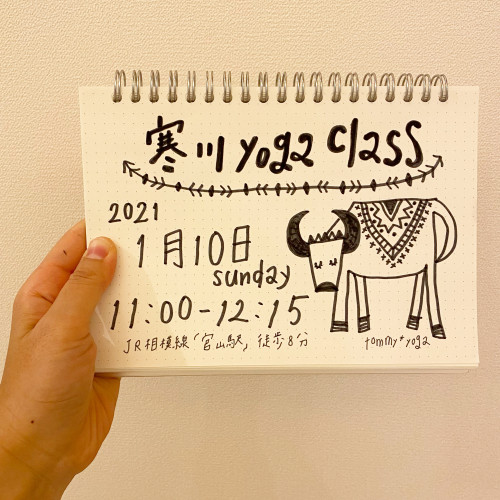 寒川 yoga class
2021
1月10日
sunday
11:00-12:15
JR相模線「宮山駅」徒歩8分
tommy*yoga